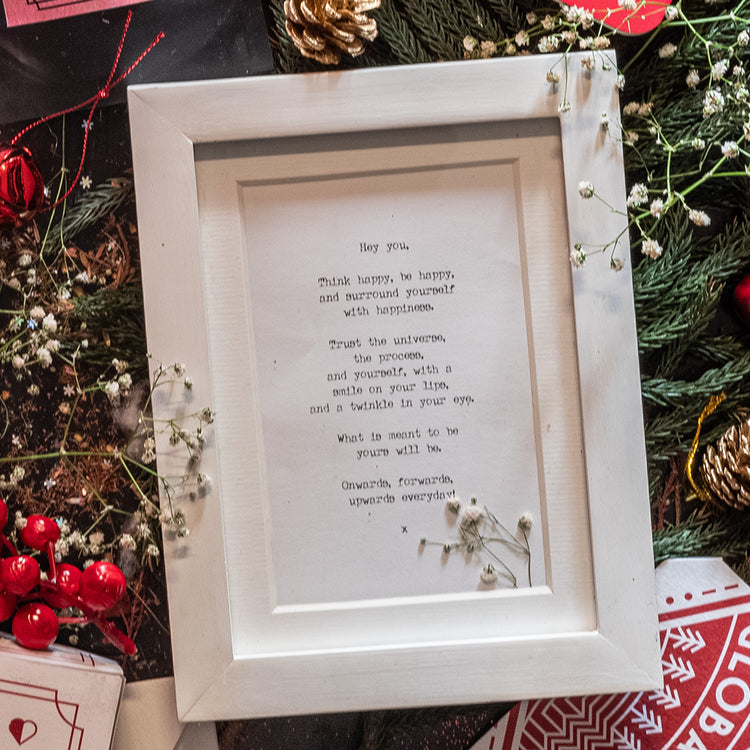 Hey you,
Think happy, be happy,
and surround yourself
with happiness.
Trust the universe,
the process,
and yourself, with a
smile on your lips,
and a twinkle in your eye.
What is meant to be
yours will be.
Onwards, forwards,
upwards everyday!
x
GLOBA